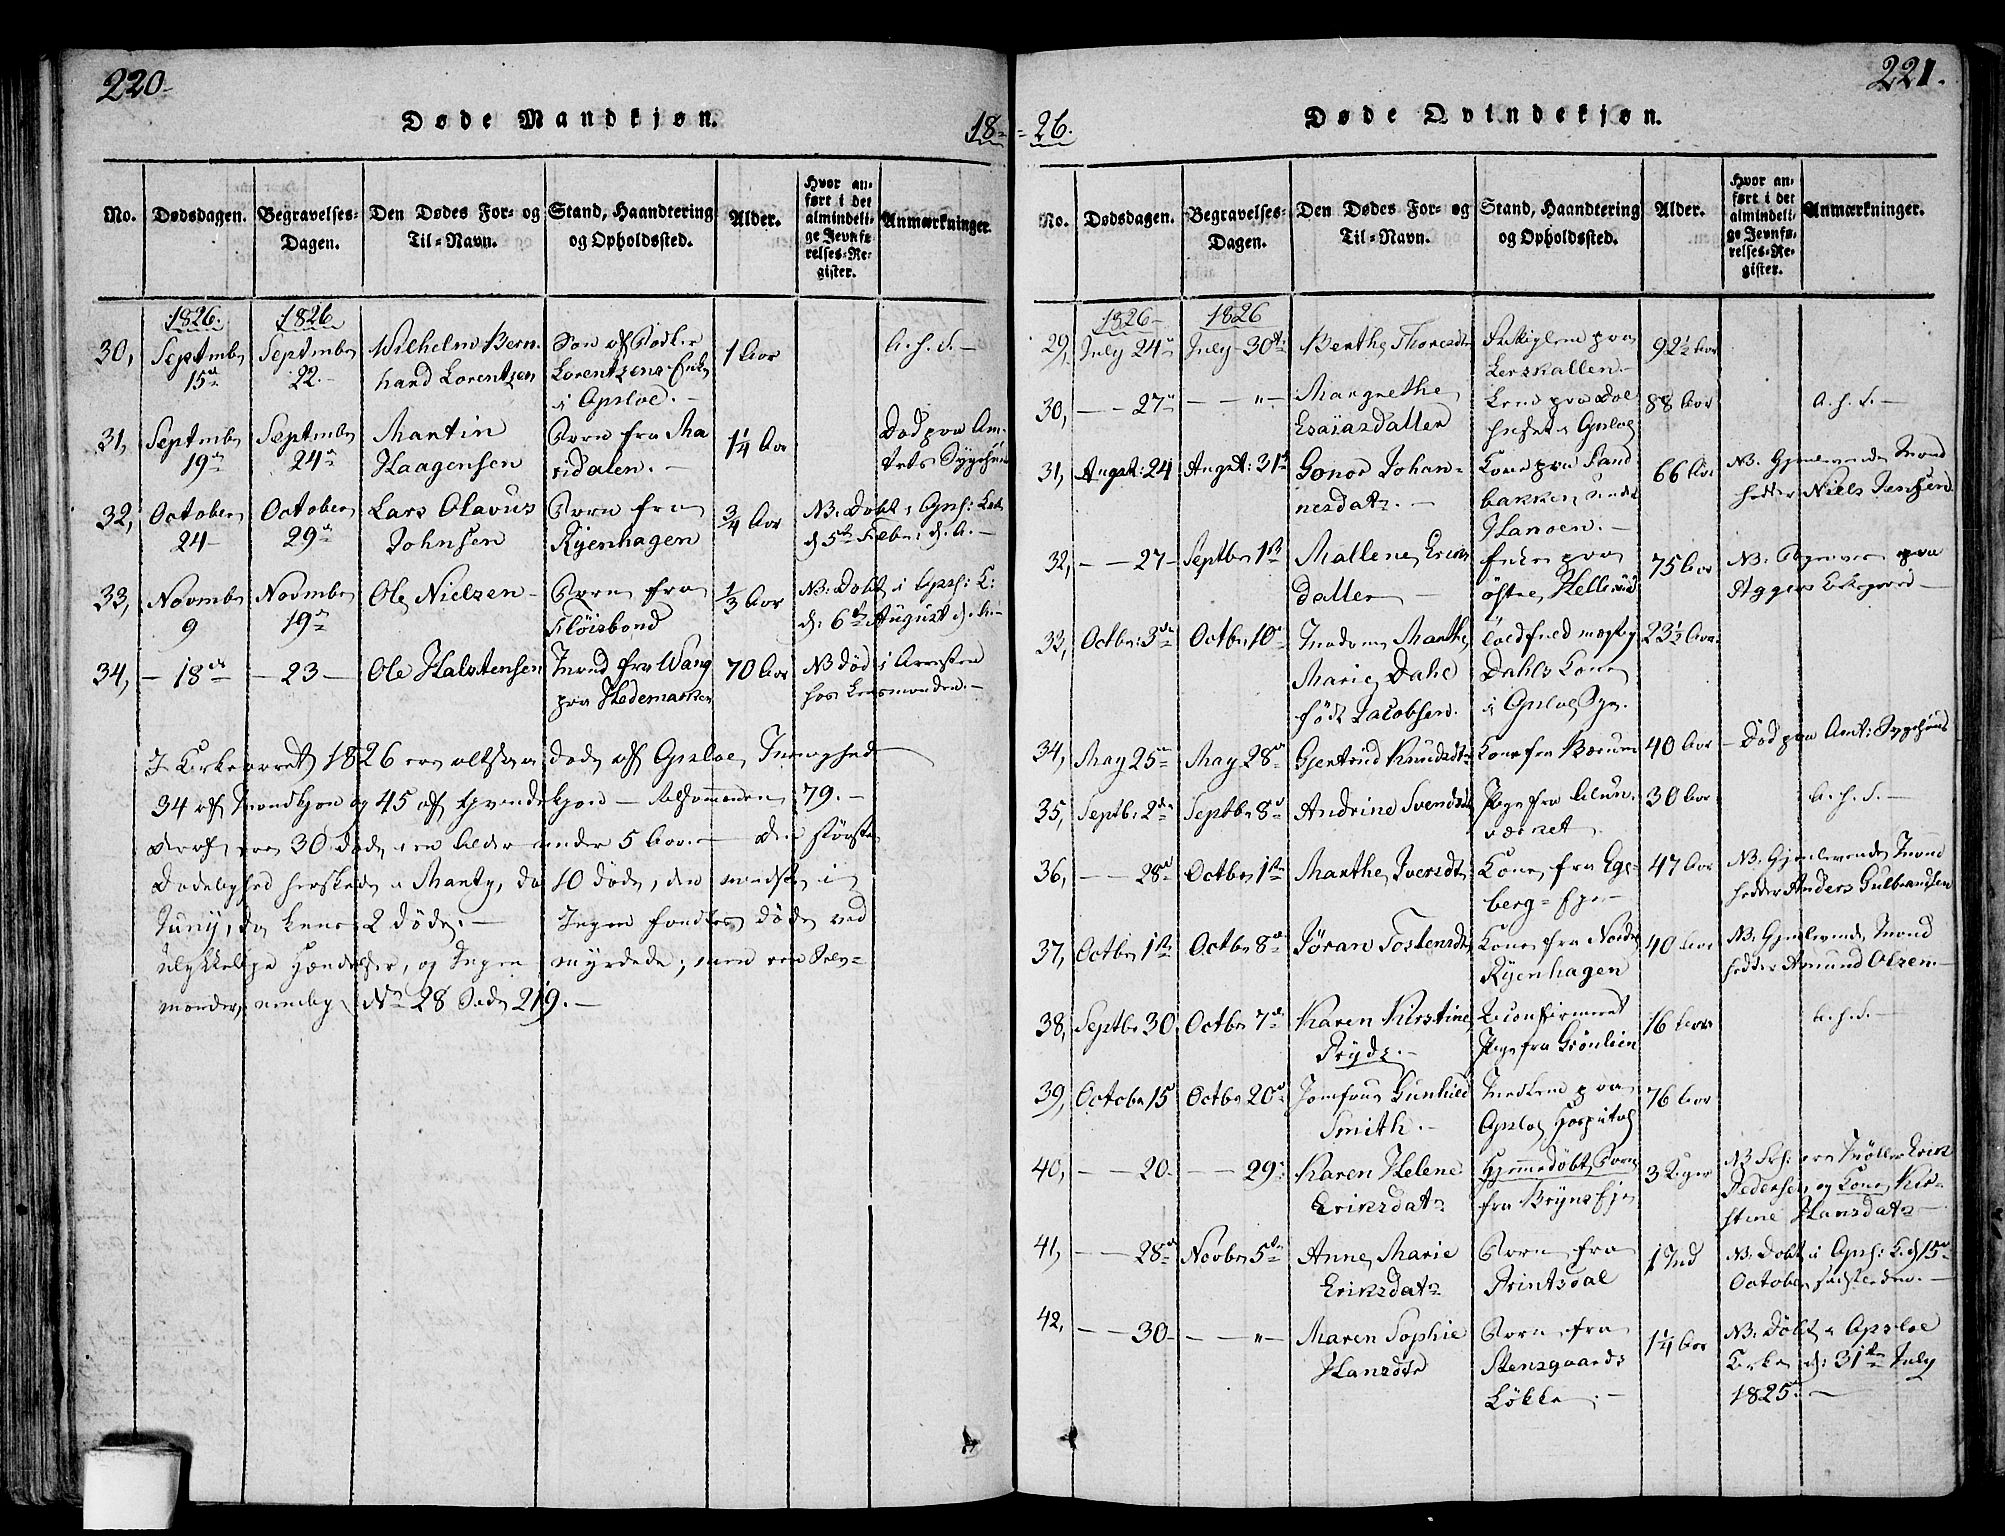 220
Døde Mandkjøn.
18-
No.
Dødsdagen.
Begravelses-
Dagen.
Den Dødes For- og
Til-Navn.
Stand, Haandtering
og Opholdssted.
Alder.
Hvor an-
ført i det
almindeli-
ge Jevnfø-
relses-Re-
gister.
Anmærkninger.
1826.
1826
30,
Septmbr
15d
Septmbr
22.-
Wilhelm Bern-
hard Lorentzen
Søn af
Lorentzens Enke
i Opsloe.-
1 Aar
A.h.S.-
31,
Septmbr
19
Septmbr
24
Martin
Haagensen
Barn fra Ma
ridalen.-
1¼ Aar
Død paa Am-
tets Sygehuus
32,
October
24-
October
29
Lars Olavus
Johnsen
Barn fra
Ryenhagen
¾ Aar
NB: Døbt i Opsl: Kirke
d 5te Febr: d. A.-
33,
Novmbr
9
Novmbr
19
Ole Nielsen-
Barn fra
Fløisbond
⅓ Aar
NB: Døbt i Opsl: K:
d: 6te August d. A-
34,
- 18de
- 23 -
Ole Halstensen
Mand fra Wang
paa Hedemarken
70 Aar
NB død i Arresten
hos Lensmanden.-
I Kirkeaaret 1826 ere altsaa døde af Opsloe Menighed
34 af Mandkjøn og 45 af Qvindekjøn - tilsammen 79.-
deraf ere 30 døde i en Alder under 5 Aar.- Den største
Dødelighed herskede i Marty, da 10 døde, den mindste i
Juny, da kun 2 døde.- Ingen fandtes døde ved
ulykkelige Hændelser, og Ingen myrdede; men een Selv-
morder, nemlig No 28 Side 219.-
221.
Døde Qvindekjøn.
26.
No.
Dødsdagen.
Begravelses-
Dagen.
Den Dødes For- og
Til-Navn.
Stand, Haandtering
og Opholdssted.
Alder.
Hvor an-
ført i det
almindeli-
ge Jevnfø-
relses-Re-
gister.
Anmærkninger.
1826-
1826
29,
July 24
July 30te
Berthe Thoresdtr
paa
92½ Aar
30,
- - 27
- - "-
Margrethe
Esaiasdatter
Lem paa Dol
huset i Opsloe
88 Aar
A.h.S.-
31,
August: 24
August: 31te
Gonor Johan-
nesdatr.-
Kone paa Sand
bakken under
Hanoen.-
66 Aar
NB. Gjenlevende Mand
hedder Niels Jensen
32,
- - 27-
Septbr 1ste
Mallene Eriks
datter -
Enke paa
østre Hellerud
75 Aar
NB. Begraven paa
Aggers Kirkegaard-
33,
Octbr: 3de
Octbr 10
Madame Marthe
Marie Dahl
født Jacobsen.
Dahls Kone
i Opsloe Bye.
23½ Aar
34,
May 25
May 28
Gjertrud Knudsdtr
Kone fra Bærum
40 Aar
- Død paa Amt: Sygehuus
35,
Septb: 2de
Septbr 8
Andrine Svendsdtr
Pige fra Alun-
værket
30 Aar
A.h.S.-
36,
- - 28
Octbr 1ste
Marthe Iversdtr
Kone fra Ege-
berg-Eje-
47 Aar
NB. Gjenlevende Mand
hedder Anders Gulbrandsen
37,
Octbr 1ste
Octbr 8
Jøran Tostensdtr
Kone fra Nordre
Ryenhagen
40 Aar
NB: Gjenlevende Mand
hedder Amund Olsen.-
38,
Septbr 30
Octbr 7de
Karen Kirstine
Pryds.-
Uconfirmeret
Pige fra Grønlien
16 Aar
A.h.S.-
39,
Octobr 15
Octbr 20
Jomfrue Gunhild
Smith.-
paa
Opsloe Hospital
76 Aar
40,
- - 20-
- - 29
Karen Helene
Eriksdatr
Hjemmedøbt Barn
fra Bryns Eje
3 Uger
NB. ere Møller Erik
Pedersen og Kone Kir-
stine Hansdatr -
41,
- - 28
Novbr 5te
Anne Marie
Eriksdatr
Barn fra
Printsdal
1 Md
NB. Døbt i Opsl: K. d 15
October sidstleden.-
42,
- - 30-
- - "-
Maren Sophie
Hansdtr
Barn fra
Stensgaards
Løkke.-
1¼ Aar
NB. Døbt i Opsloe
Kirke d: 31te July
1825.-